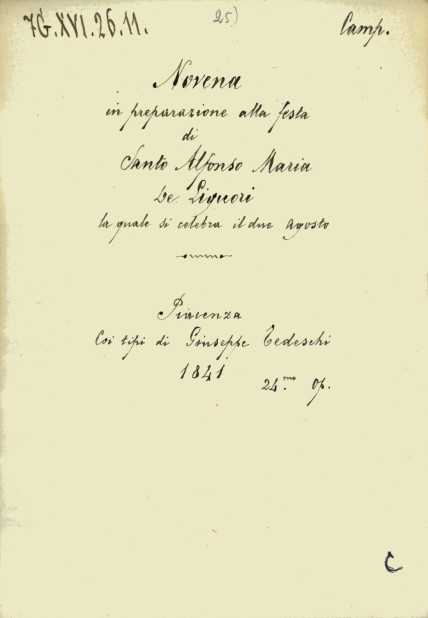 7G.XVI.26.11.
25)
Camp.
Novena
in preparazione alla festa
di
Santo Alfonso Maria
De. Liguori
la quale si celebra il due agosto
Piacenza
Coi tipi di Giuseppe Tedeschi
1841
24.mo Op.
C